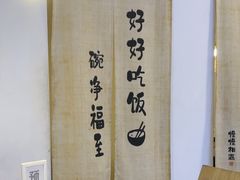 好好吃饭
碗净福至
预